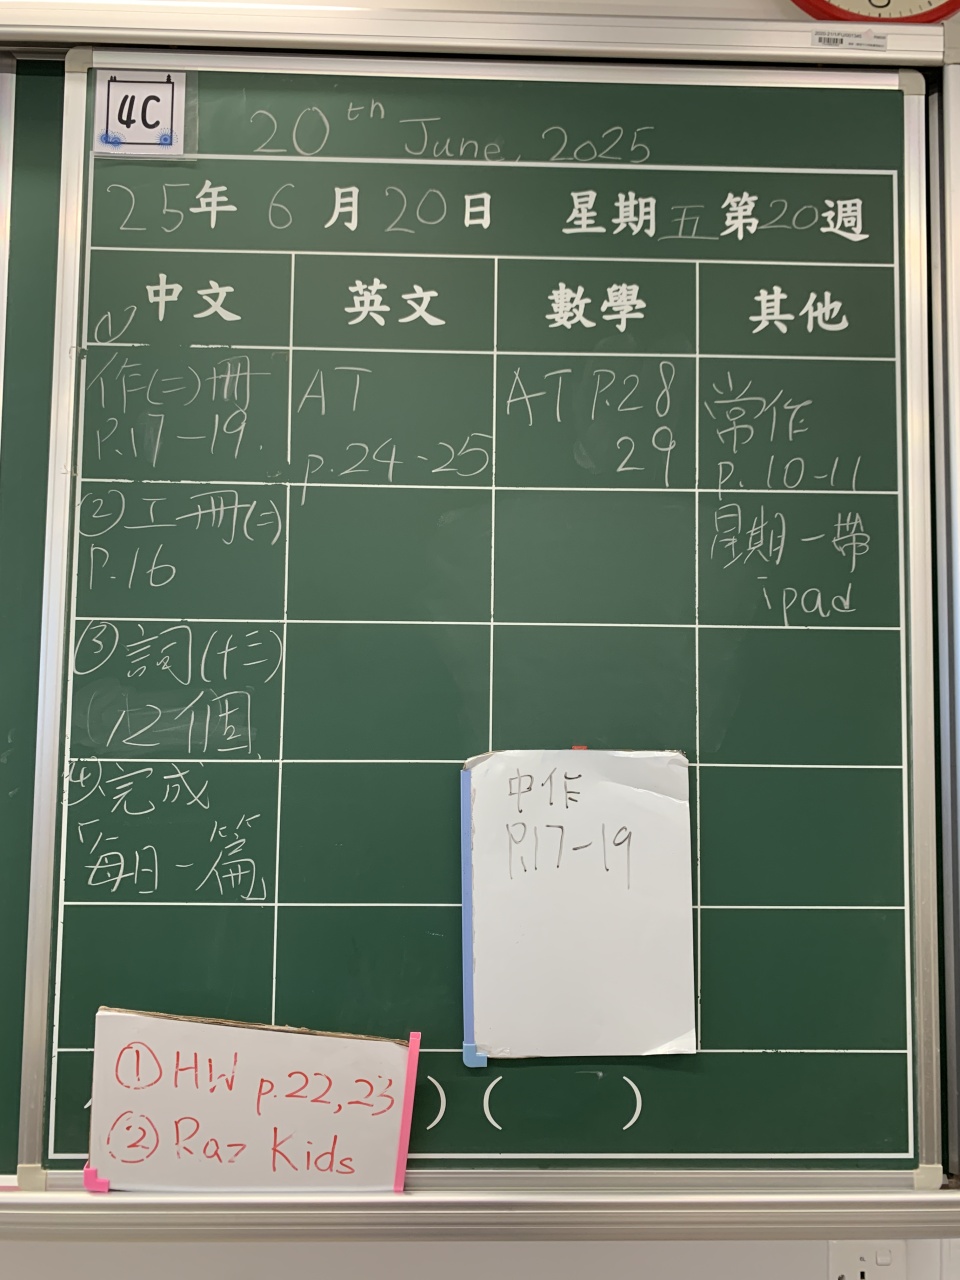 4C
20th June, 2025
25年 6月20日 星期五第20週
中文 英文 數學 其他
① 作(二)冊
P.17-19.
AT
p.24-25
AT P.28
29
常作
p. 10-11
② 工冊(二)
P.16
星期一帶
ipad
③ 詞(十三)
12個
④ 完成
「每日一篇」
中作
P.17-19
① HW p.22,23
② Raz Kids
( )